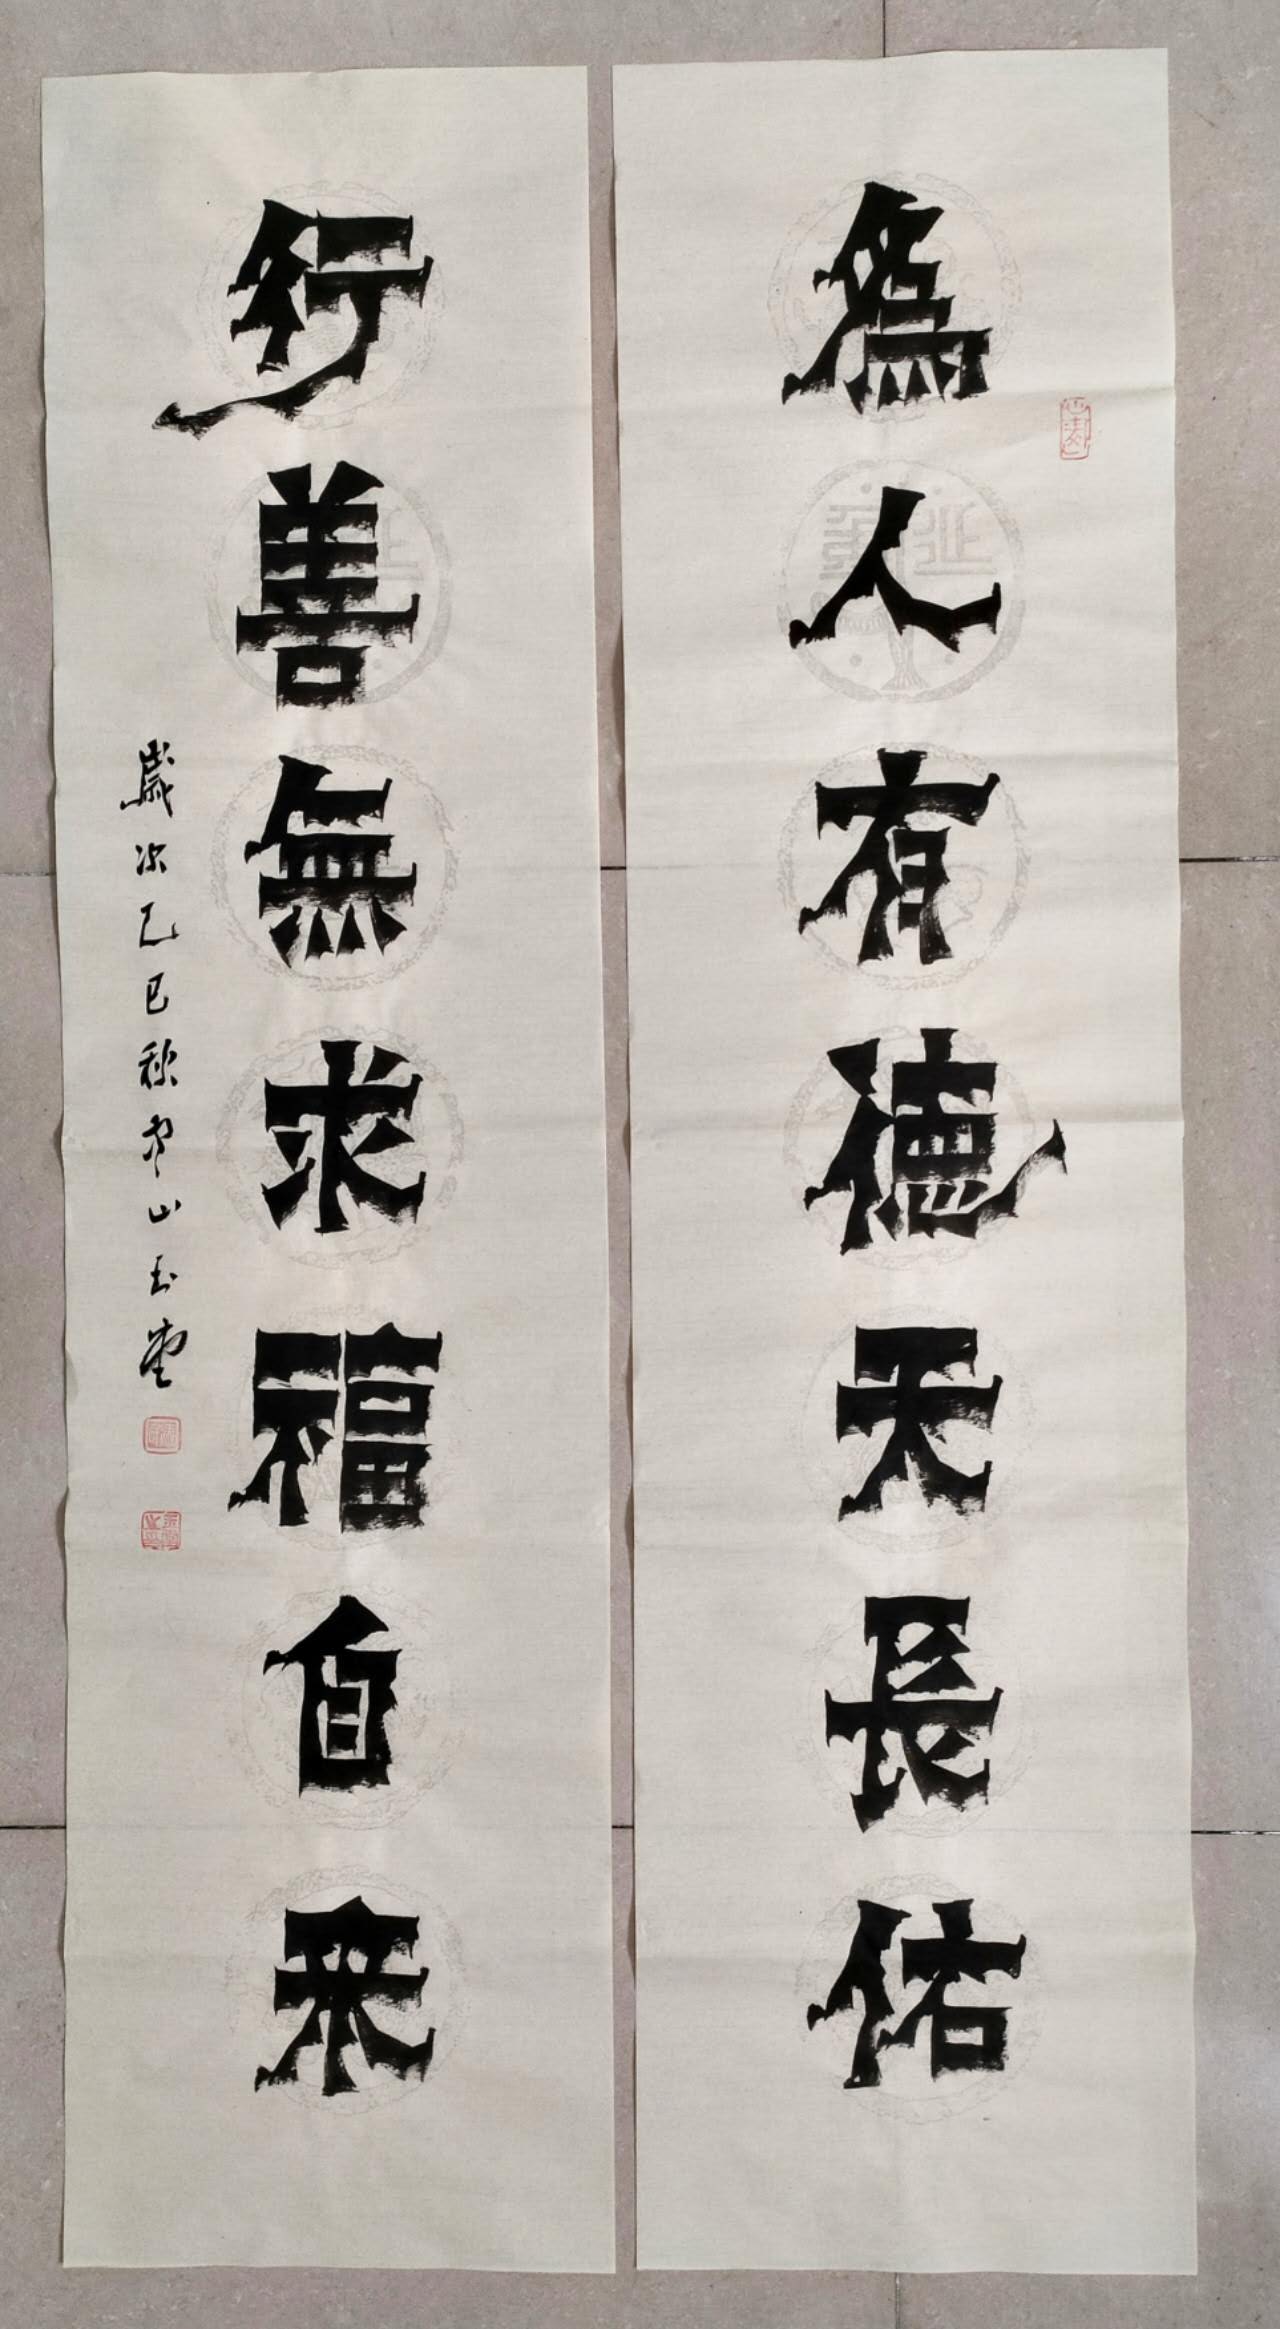 為人有德天長佑
行善無求福自来
歲次乙巳秋
山玉堂